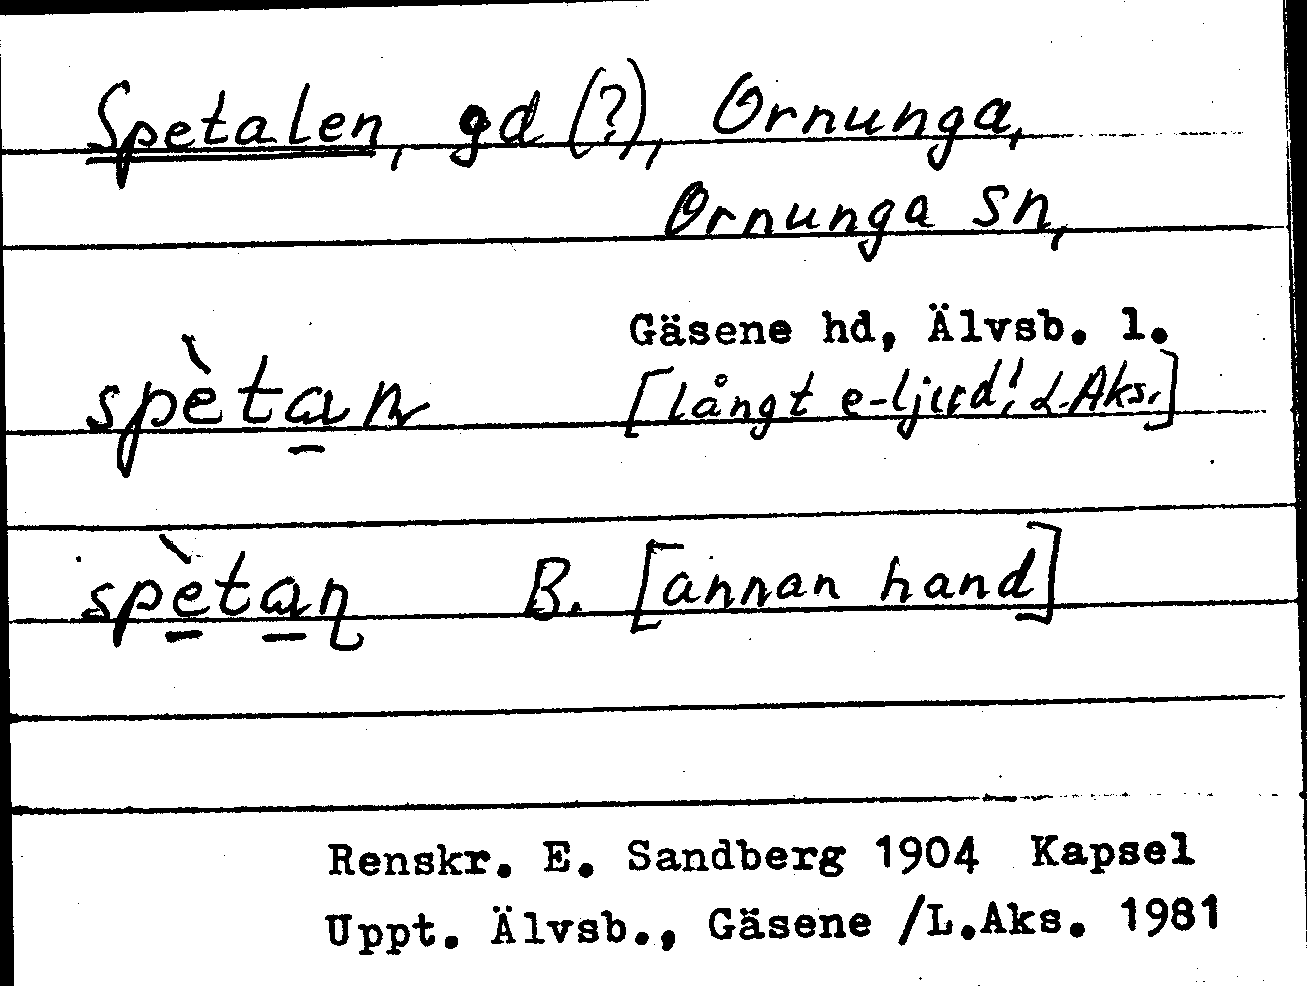 Spetalen, gd (?), Ornunga,
Ornunga sn,
Gäsene hd, Älvsb. l.
spèta̲n [långt e-ljud! L.Aks.]
spè̲ta̲n B. [annan hand]
Renskr. E. Sandberg 1904 Kapsel
Uppt. Älvsb., Gäsene /L.Aks. 1981